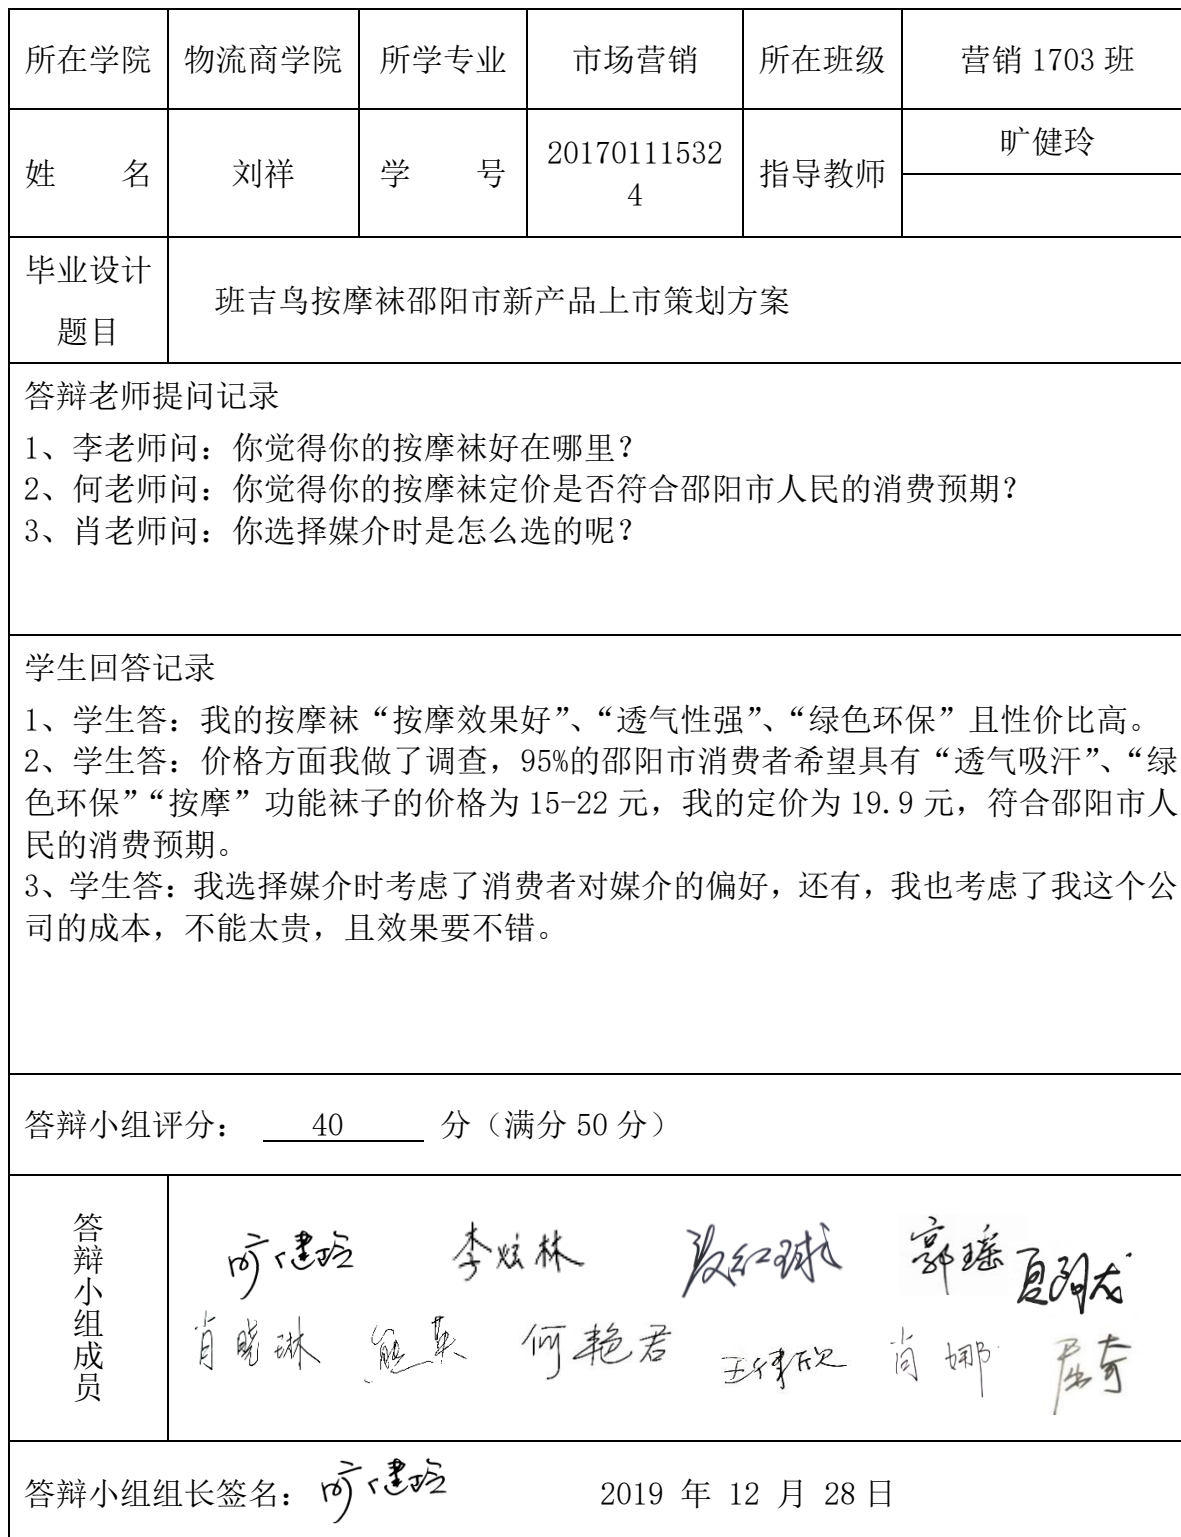 所在学院 物流商学院 所学专业 市场营销 所在班级 营销 1703 班
姓 名 刘祥 学 号 20170111532
4 指导教师 旷健玲
毕业设计
题目
班吉鸟按摩袜邵阳市新产品上市策划方案
答辩老师提问记录
1、李老师问：你觉得你的按摩袜好在哪里？
2、何老师问：你觉得你的按摩袜定价是否符合邵阳市人民的消费预期？
3、肖老师问：你选择媒介时是怎么选的呢？
学生回答记录
1、学生答：我的按摩袜“按摩效果好”、“透气性强”、“绿色环保”且性价比高。
2、学生答：价格方面我做了调查，95%的邵阳市消费者希望具有“透气吸汗”、“绿
色环保”“按摩”功能袜子的价格为 15-22 元，我的定价为 19.9 元，符合邵阳市人
民的消费预期。
3、学生答：我选择媒介时考虑了消费者对媒介的偏好，还有，我也考虑了我这个公
司的成本，不能太贵，且效果要不错。
答辩小组评分： 40 分（满分 50 分）
答辩小组成员
旷健玲 李炫林 郭瑶
肖晓琳 熊英 何艳君 肖娜 屈奇
答辩小组组长签名：旷健玲 2019 年 12 月 28 日